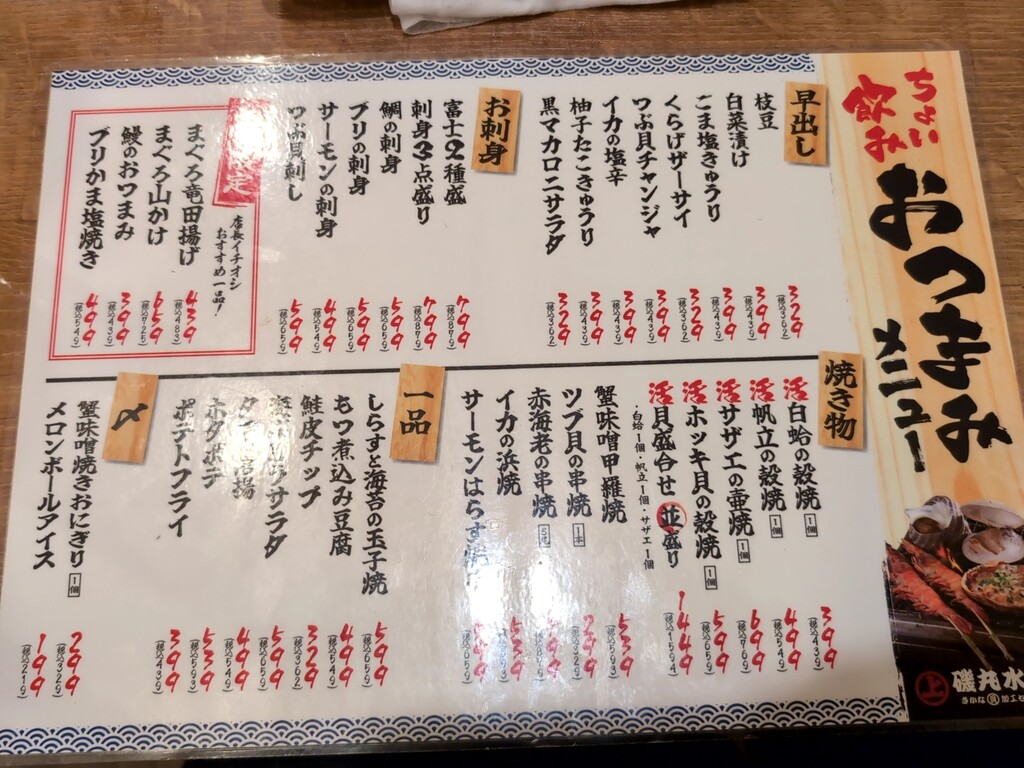 ちょい飲み
おつまみ
メニュー
早出し
枝豆 329 (税込362)
白菜漬け 399 (税込439)
ごま塩きゅうり 399 (税込439)
くらげザーサイ 329 (税込362)
つぶ貝チャンジャ 399 (税込439)
イカの塩辛 399 (税込439)
柚子たこきゅうり 399 (税込439)
黒マカロニサラダ 329 (税込362)
お刺身
富士2種盛 799 (税込879)
刺身3点盛り 799 (税込879)
鯛の刺身 599 (税込659)
ブリの刺身 599 (税込659)
サーモンの刺身 499 (税込549)
つぶ貝刺し 599 (税込659)
定
店長イチオシ
おすすめ一品!
まぐろ竜田揚げ 439 (税込483)
まぐろ山かけ 659 (税込725)
鰻のおつまみ 399 (税込439)
ブリかま塩焼き 499 (税込549)
焼き物
活 白蛤の殻焼 1個 399 (税込439)
活 帆立の殻焼 1個 499 (税込549)
活 サザエの壷焼 1個 699 (税込769)
活 ホッキ貝の殻焼 1個 599 (税込659)
活 貝盛合せ 並盛り 1449 (税込1594)
・白蛤1個・帆立1個・サザエ1個
蟹味噌甲羅焼 539 (税込593)
ツブ貝の串焼 1本 299 (税込329)
赤海老の串焼
イカの浜焼 539 (税込593)
サーモンはらす焼
一品
しらすと海苔の玉子焼 599 (税込659)
もつ煮込み豆腐 499 (税込549)
鮭皮チップ 329 (税込362)
サラダ 599 (税込659)
唐揚 499 (税込549)
ホタポテ 539 (税込593)
ポテトフライ 399 (税込439)
〆
蟹味噌焼きおにぎり 1個 299 (税込329)
メロンボールアイス 199 (税込219)
上 磯丸水
さかな 貝 加工セ